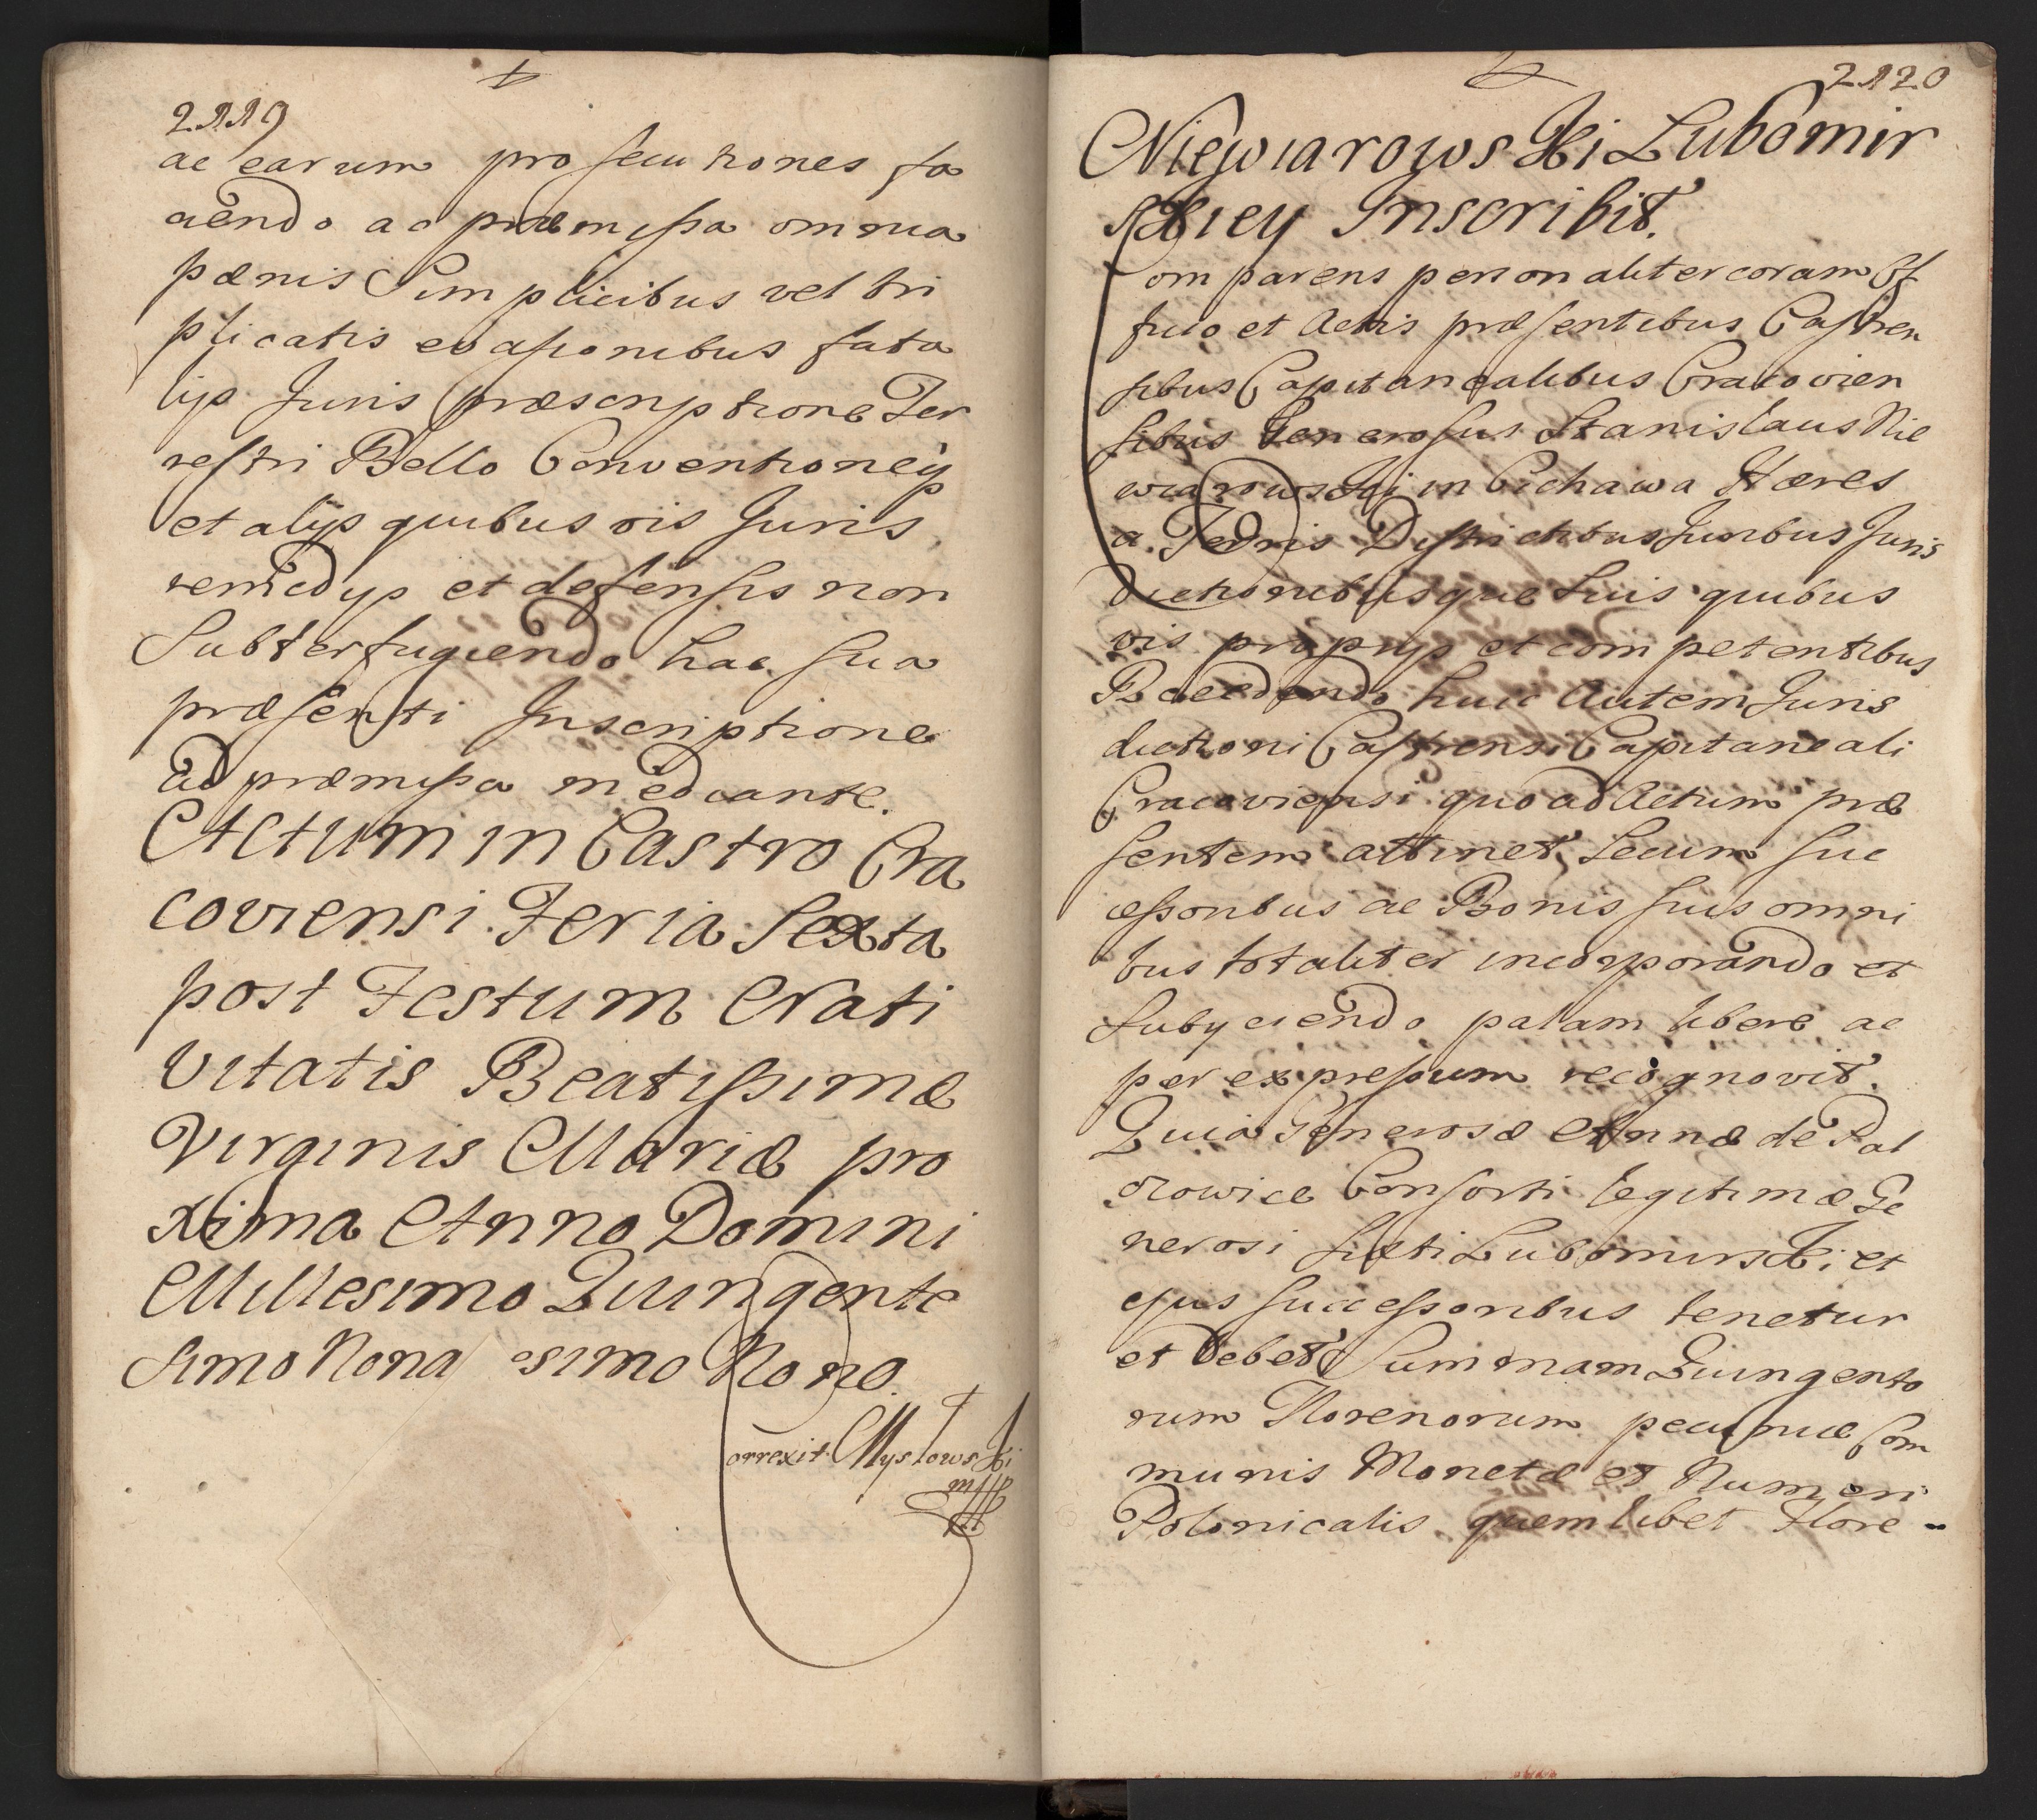 2119
ac earum prosecutiones fa
ciendo ac præmissa omnia
pænis Simplicibus vel tri
plicatis evasionibus fata
lijs Juris præscriptione Ter
restri Bello Conventioneijs
et alijs quibus vis Juris
remedijs et defensis non
Subterfugiendo hac sua
præsenti Inscriptione
ad præmissa mediante.
Actum in Castro Cra
coviensi Feria Sexta
post Festum Nati
vitatis Beatissimæ
Virginis Mariæ pro
xima Anno Domini
Millesimo Quingente
simo Nona esimo Nono.
Correxit Mysłowski
mpp
2120
Niewiarowski Lubomir
skiey Inscribit.
Comparens personaliter coram Of
ficio et Actis præsentibus Castren
sibus Capitanealibus Cracovien
sibus Generosus Stanislaus Nie
wiarowski in Cichawa Hæres
a Terris Districtibus Juribus Juris
dictionibusque Suis quibus
vis proprijs et competentibus
Recedendo huic Autem Juris
dictioni Castrensi Capitaneali
Cracoviensi quoad Actum præ
sentem attinet, Secum Suc
cessoribus ac Bonis suis omni
bus totaliter incorporando et
Subijciendo palam libere ac
per expressum recognovit.
Quia Generosæ Annæ de Pal
czowice Consorti legitimæ Ge
nerosi Lubomirski et
ejus successoribus tenetur
et Debet Summam Quingento
rum Florenorum pecuniæ Com
munis Monetæ et Numeri
Polonicalis quemlibet Flore-